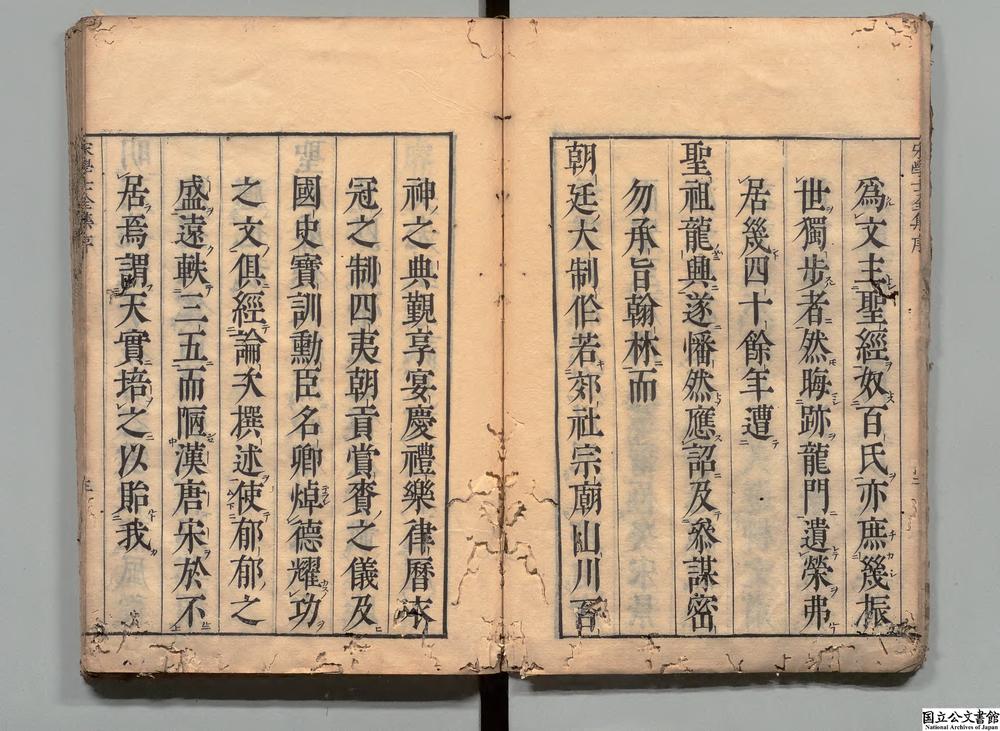 宋學士全集序
爲文主聖經奴百氏亦庶幾振
世獨步者然晦跡龍門遺榮弗
居幾四十餘年遭
聖祖龍興遂幡然應詔及叅謀密
勿承旨翰林而
朝廷大制作若郊社宗廟山川百
神之典覲享宴慶禮樂律曆衣
冠之制四夷朝貢賞賚之儀及
國史寶訓勳臣名卿焯德耀功
之文俱經論次撰述使郁郁之
盛遠軼三五而陋漢唐宋於不
居焉謂天實培之以貽我
宋學士全集序
国立公文書館
National Archives of Japan